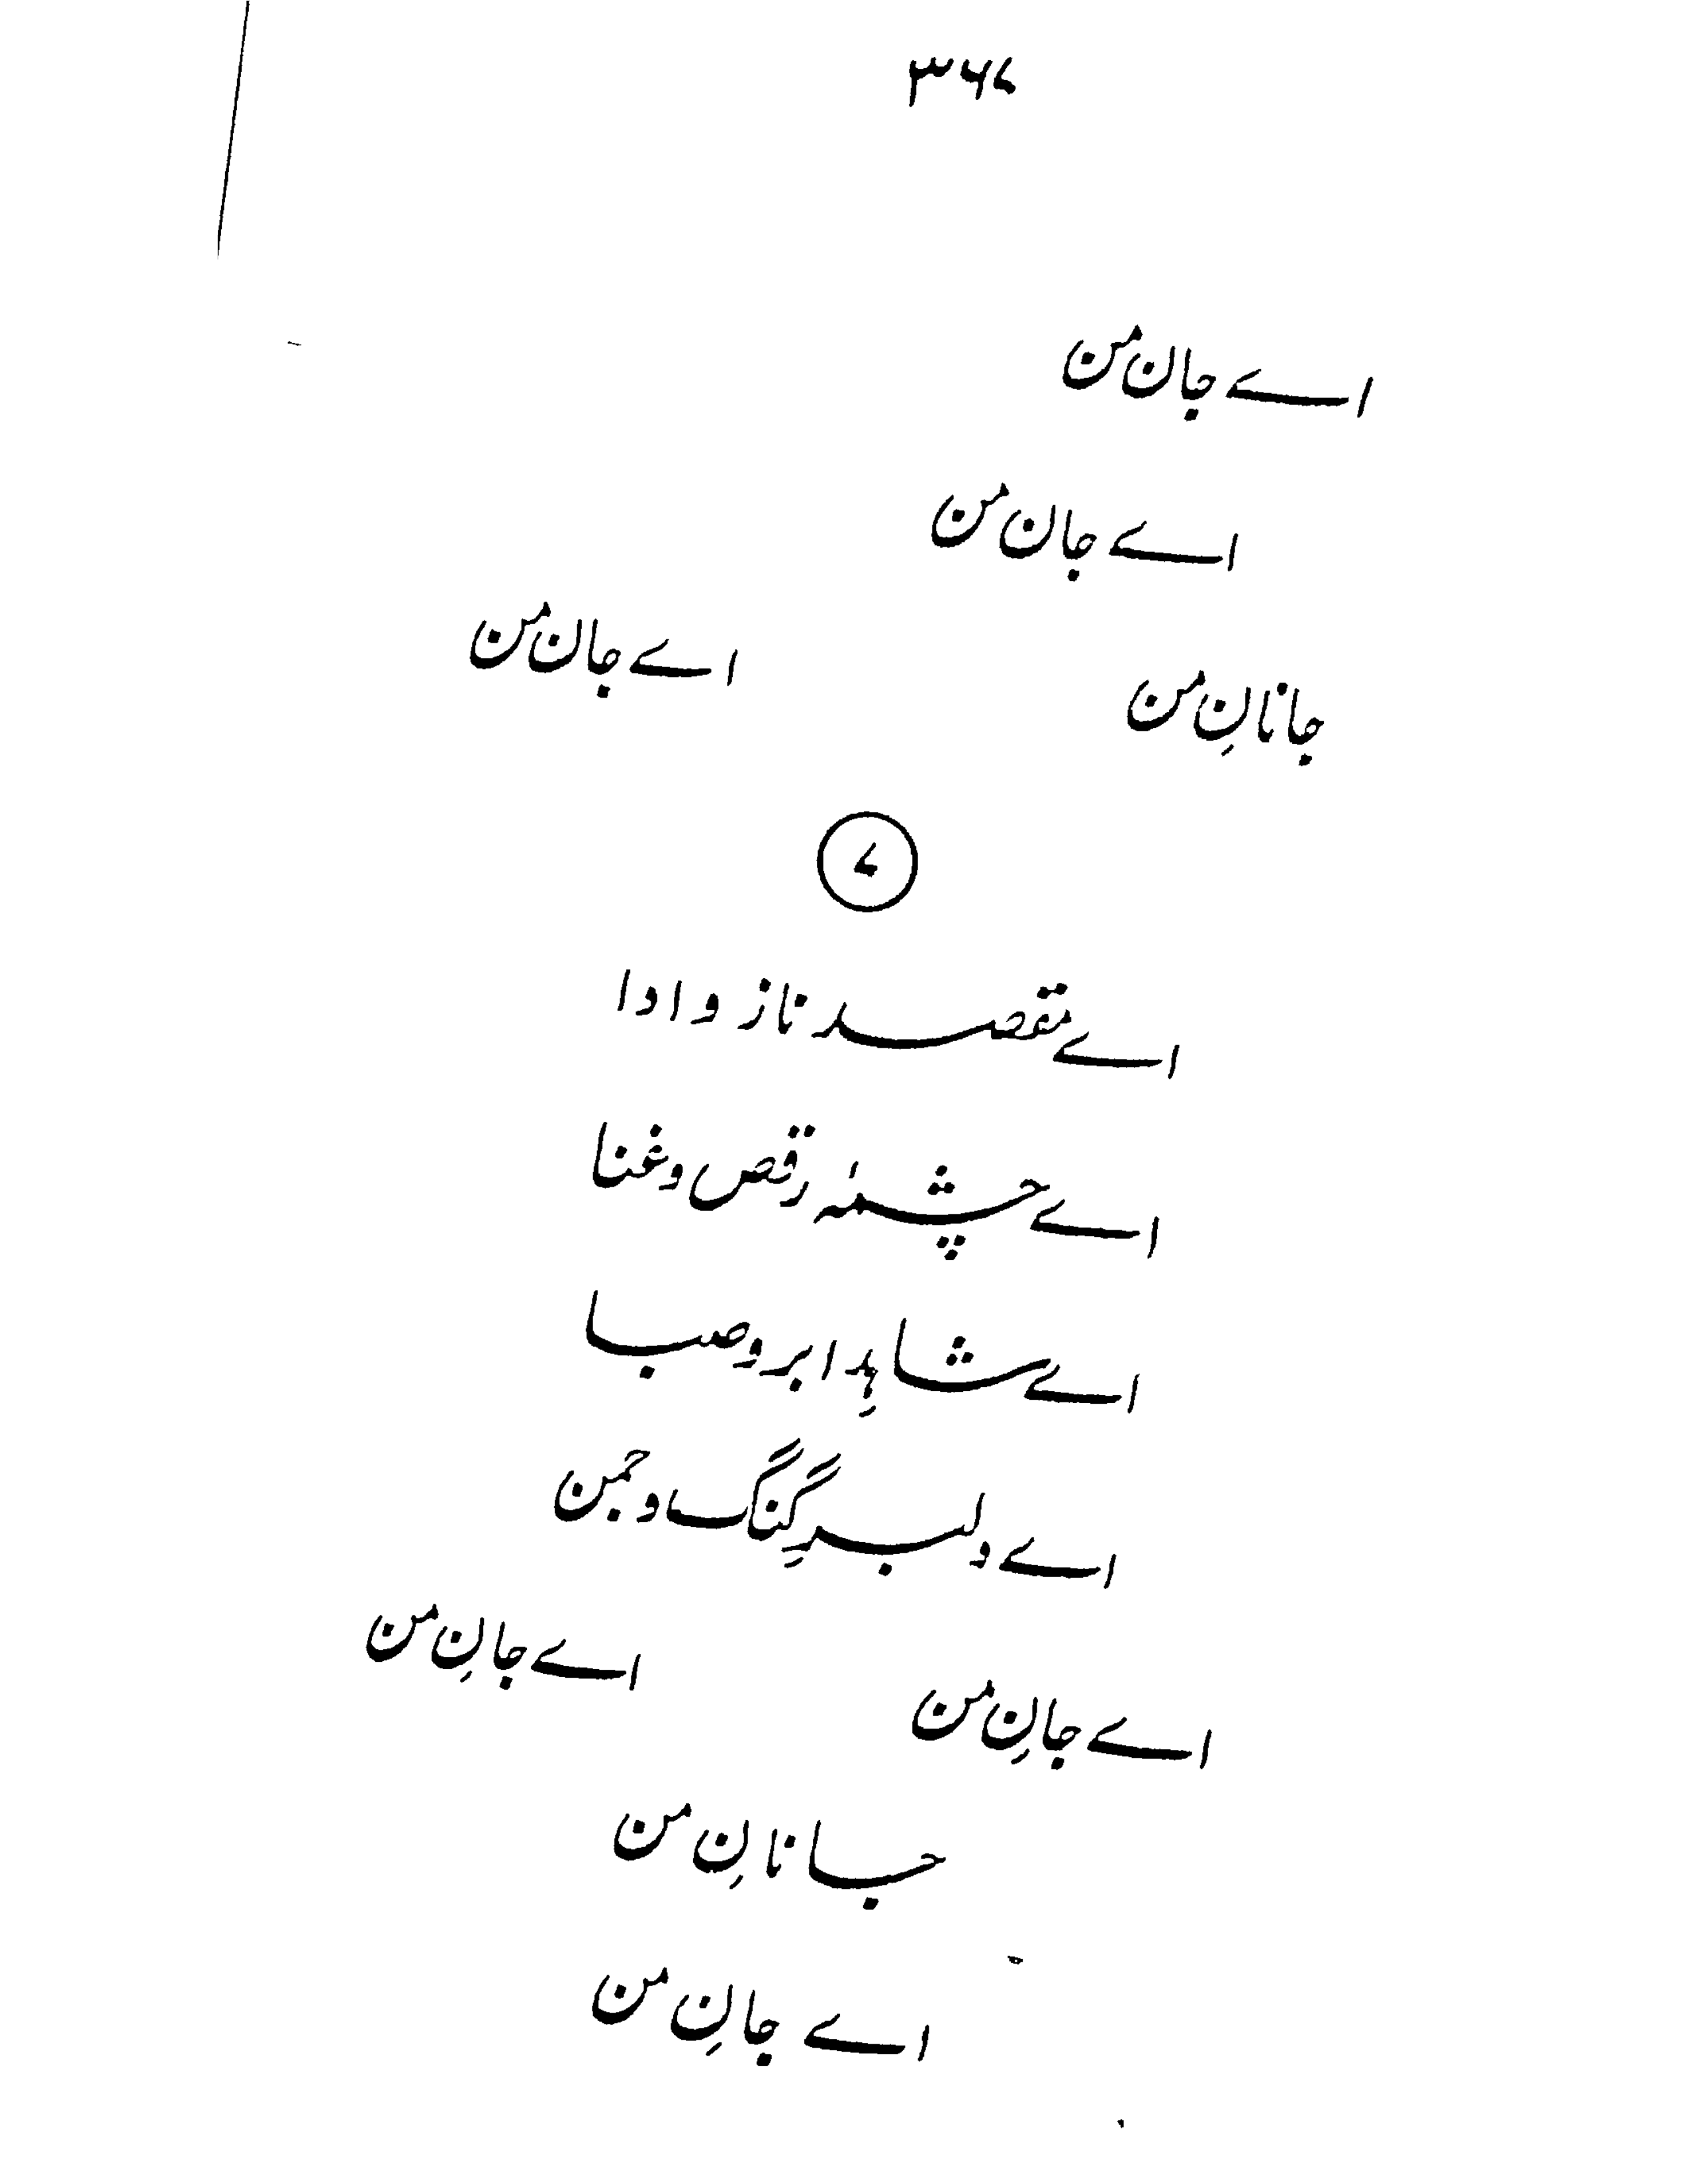 ۳۶۷
اے جان من
اے جان من
جانانِ من
اے جان من
۷
اے مقصد ناز و ادا
اے چشمۂ رقص و غنا
اے شاہِد ابر و صبا
اے دلبرِ گنگ و جمن
اے جانِ من
اے جانِ من
جانانِ من
اے جانِ من